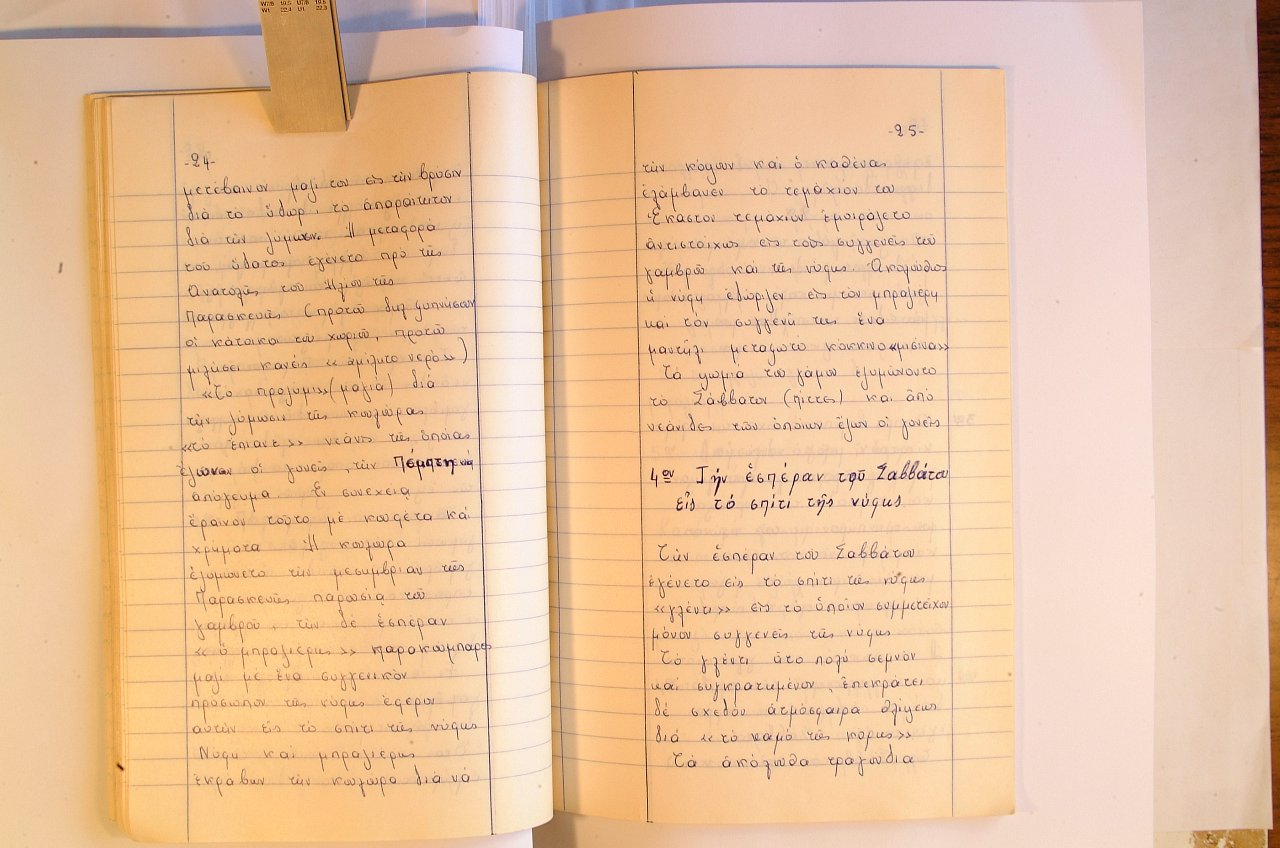 W7/8 19.5 U7/8 19.5
W1 22.4 U1 22.3
-24-
μετέβαινον μαζί του εἰς τὴν βρύσιν
διά τό ὕδωρ, τό ἀπαραίτητον
διά τὴν ζύμωσιν. Ἡ μεταφορά
τοῦ ὕδατος ἐγένετο πρό τῆς
Ἀνατολῆς τοῦ Ἡλίου τῆς
Παρασκευῆς (προτοῦ δηλ ξυπνήσουν
οἱ κάτοικοι τοῦ χωριοῦ, προτοῦ
μιλήσει κανείς «ἀμίλητο νερό»)
«Τό προζύμι» (μαγιά) διά
τὴν ζύμωσιν τῆς κουλούρας
«τό ἔπιανε» νεᾶνις τῆς ὁποίας
ἔζων οἱ γονεῖς, τὴν Πέμπτη
ἀπόγευμα. Ἐν συνεχείᾳ
ἔραινον τοῦτο μέ κουφέτα καί
χρήματα Ἡ κουλούρα
ἐζυμώνετο τὴν μεσημβρίαν τῆς
Παρασκευῆς παρουσίᾳ τοῦ
γαμβροῦ, τὴν δέ ἑσπέραν
«ὁ μπράζιερης» παρακούμπαρος
μαζί μέ ἕνα συγγενικόν
πρόσωπον τῆς νύφης ἔφερον
αὐτὴν εἰς τό σπίτι τῆς νύφης
Νύφη καί μπράζιερης
ἐκράβων τὴν κουλούρα διά νά
-25-
τὴν κόψουν καί ὁ καθένας
ἐλάμβανεν τό τεμάχιόν του
Ἕκαστον τεμάχιον ἐμοιράζετο
ἀντιστοίχως εἰς τούς συγγενεῖς τοῦ
γαμβροῦ καί τῆς νύφης. Ἀκολούθως
ἡ νύφη ἐδώριζεν εἰς τόν μπράζιερη
καί τόν συγγενῆ της ἕνα
μαντήλι μεταξωτό κόκκινο «μισίνα»
Τά ψωμιά τοῦ γάμου ἐζυμώνοντο
τό Σάββατον (πίττες) καί ἀπό
νεάνιδες τῶν ὁποίων ἔζων οἱ γονεῖς
4ον Τήν ἑσπέραν τοῦ Σαββάτου
εἰς τό σπίτι τῆς νύφης
Τὴν ἑσπέραν τοῦ Σαββάτου
ἐγένετο εἰς τό σπίτι τῆς νύφης
«γλέντι» εἰς τό ὁποῖον συμμετεῖχον
μόνον συγγενεῖς τῆς νύφης
Τό γλέντι ἦτο πολύ σεμνόν
καί συγκρατημένον, ἐπεκράτει
δέ σχεδόν ἀτμόσφαιρα θλίψεως
διά «τό καμό τῆς κόρης»
Τά ἀκόλουθα τραγούδια